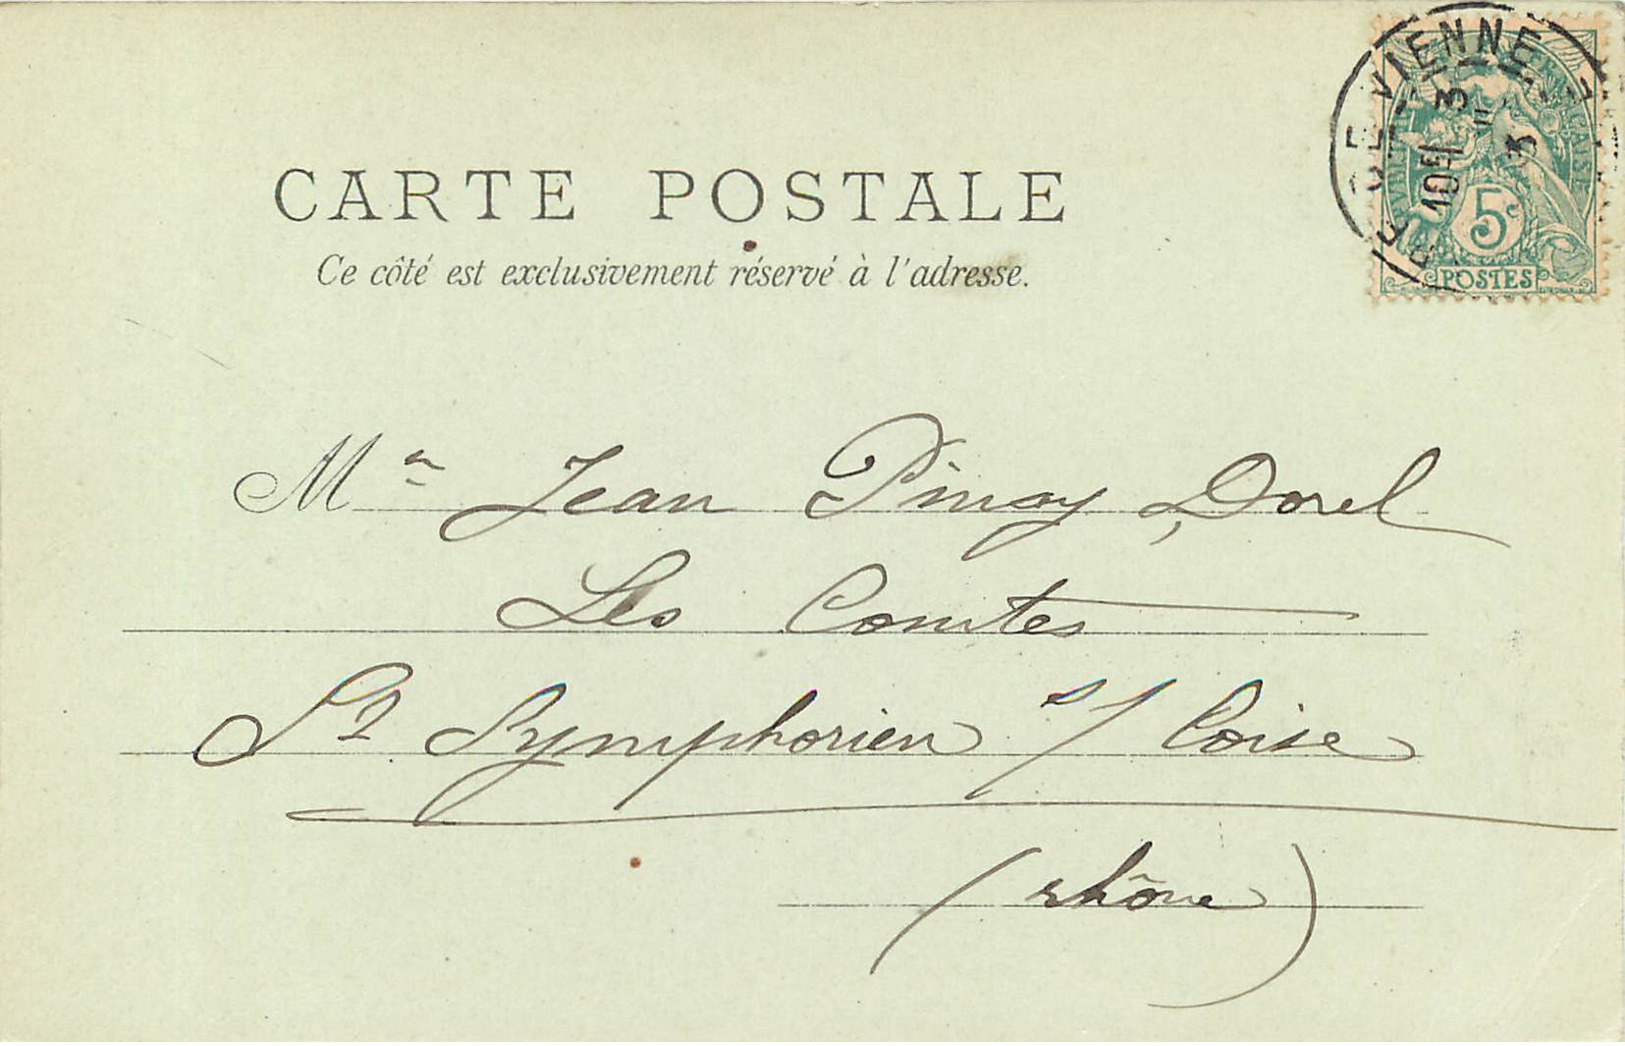 CARTE POSTALE
Ce côté est exclusivement réservé à l'adresse.
VIENNE
3
3
5c
POSTES
Mr Jean Pinay Dorel
Les Comtes
St Symphorien s/ Coise
(rhône)